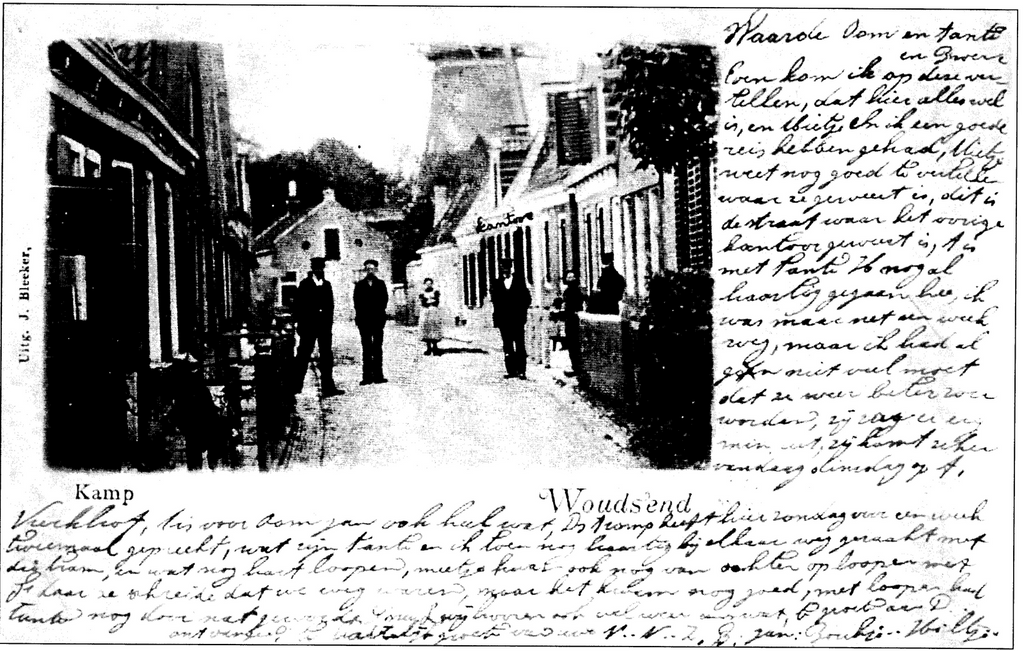 Waarde Oom en tante
en
Even kom ik op deze ver-
tellen, dat hier alles wel
is, en Mietje en ik een goede
reis hebben gehad, Mietje
weet nog goed te vertellen
waar ze geweest is, dit is
de straat waar het vorige
kantoor geweest is, 't is
met tante H nog al
haastig gegaan hee, ik
was maar net een week
weg, maar ik had al
niet veel moet
dat ze weer beter zou
worden, zij zag er
min uit, zij komt zeker
vandaag dinsdag op 't
kantoor
Uitg. J. Bleeker,
Kamp
Woudsend
, 't is voor Oom Jan ook heel wat, Ds Tromp heeft hier zondag voor een week
tweemaal gepreekt, wat zijn tante en ik toen nog haastig bij elkaar weg geraakt met
die tram, en wat nog hart loopen, meetje kwam ook nog van achter op loopen met
daar ze schreide dat we weg waren, maar het kwam nog goed, met loopen had
tante nog door nat wij hooren ook wel weer eens wat,
hartelijk groeten van uwe N. N. Z. B. Jan.